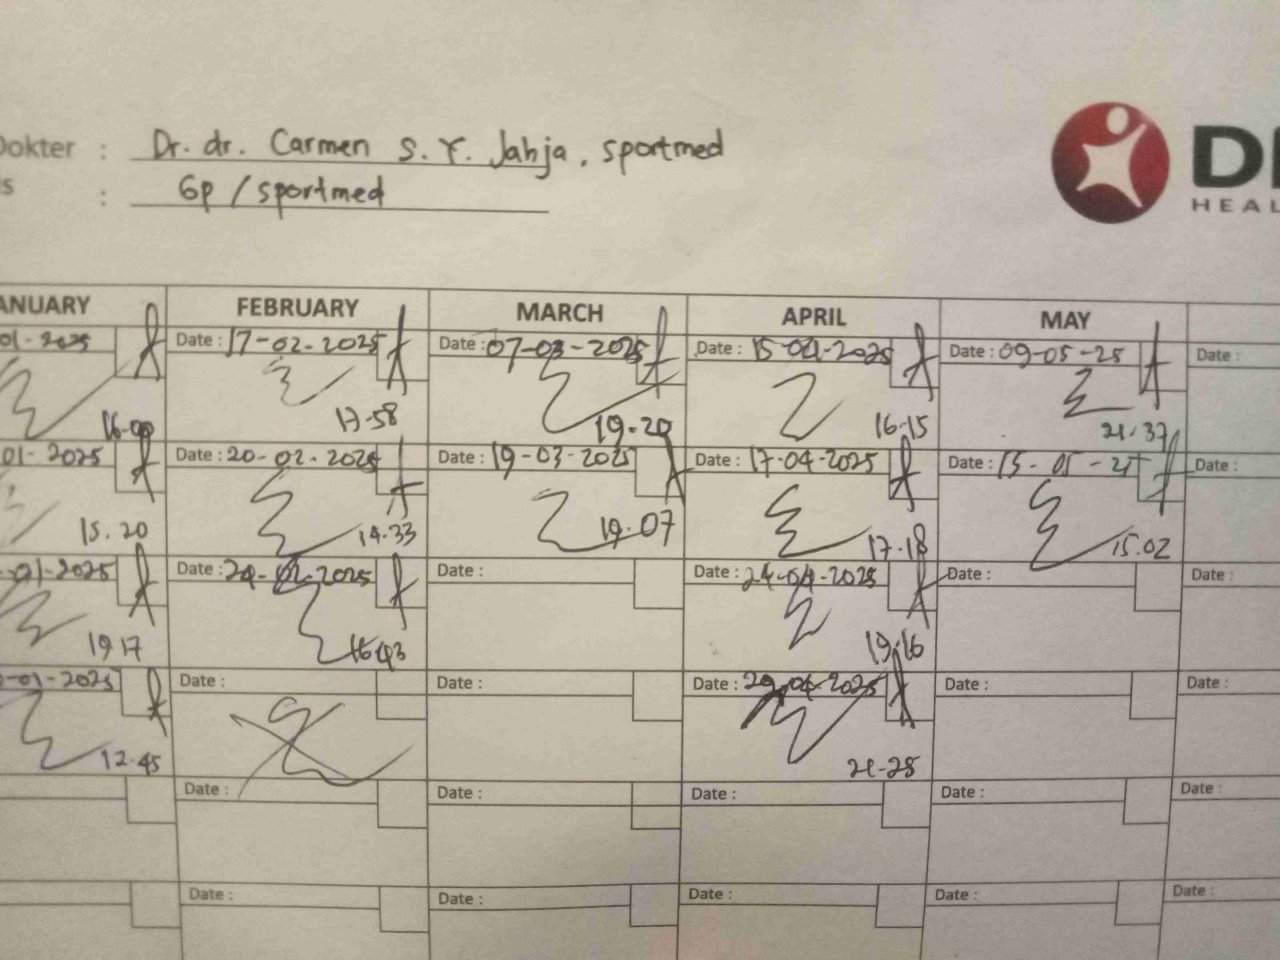 Dokter : Dr. dr. Carmen S. Y. Jahja, sportmed
s : Gp / sportmed
D
HEAL
ANUARY FEBRUARY MARCH APRIL MAY
01-2025 Date : 17-02-2025 Date : 07-03-2025 Date : 15-04-2025 Date : 09-05-25 Date :
16-00 17-58 19-20 16-15 21.37
01-2025 Date : 20-02-2025 Date : 19-03-2025 Date : 17-04-2025 Date : 15-05-25 Date :
15.20 14.33 19.07 17.18 15.02
-01-2025 Date : 24-02-2025 Date : Date : 24-04-2025 Date : Date :
19 17 16 43 19.16
-01-2025 Date : Date : Date : 29-04-2025 Date : Date :
12.45 21-28
Date : Date : Date : Date : Date :
Date : Date : Date : Date : Date :